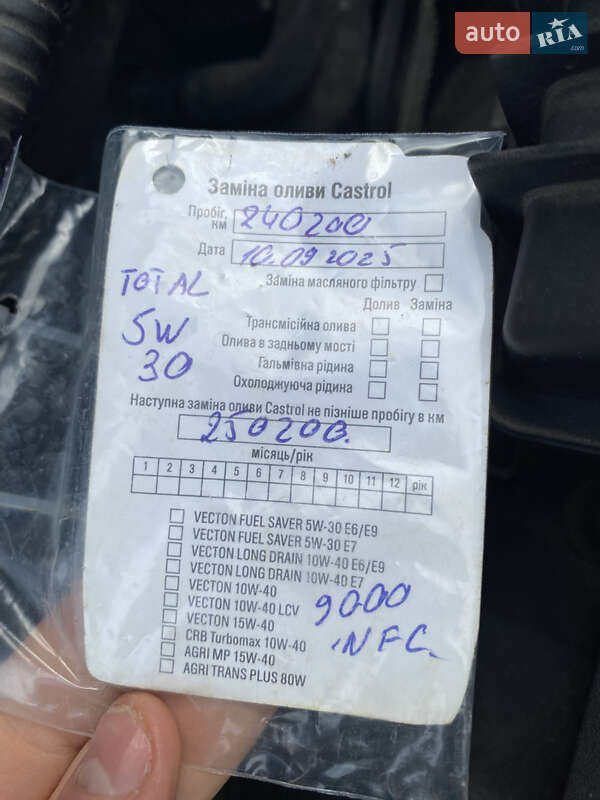 auto RIA .com
Заміна оливи Castrol
Пробіг, км 240200
Дата 10.09.2025
Заміна масляного фільтру
TOTAL 5W 30
Долив Заміна
Трансмісійна олива
Олива в задньому мості
Гальмівна рідина
Охолоджуюча рідина
Наступна заміна оливи Castrol не пізніше пробігу в км
250200
місяць/рік
1 2 3 4 5 6 7 8 9 10 11 12 рік
VECTON FUEL SAVER 5W-30 E6/E9
VECTON FUEL SAVER 5W-30 E7
VECTON LONG DRAIN 10W-40 E6/E9
VECTON LONG DRAIN 10W-40 E7
VECTON 10W-40
VECTON 10W-40 LCV
VECTON 15W-40
CRB Turbomax 10W-40
AGRI MP 15W-40
AGRI TRANS PLUS 80W
9000
NFC